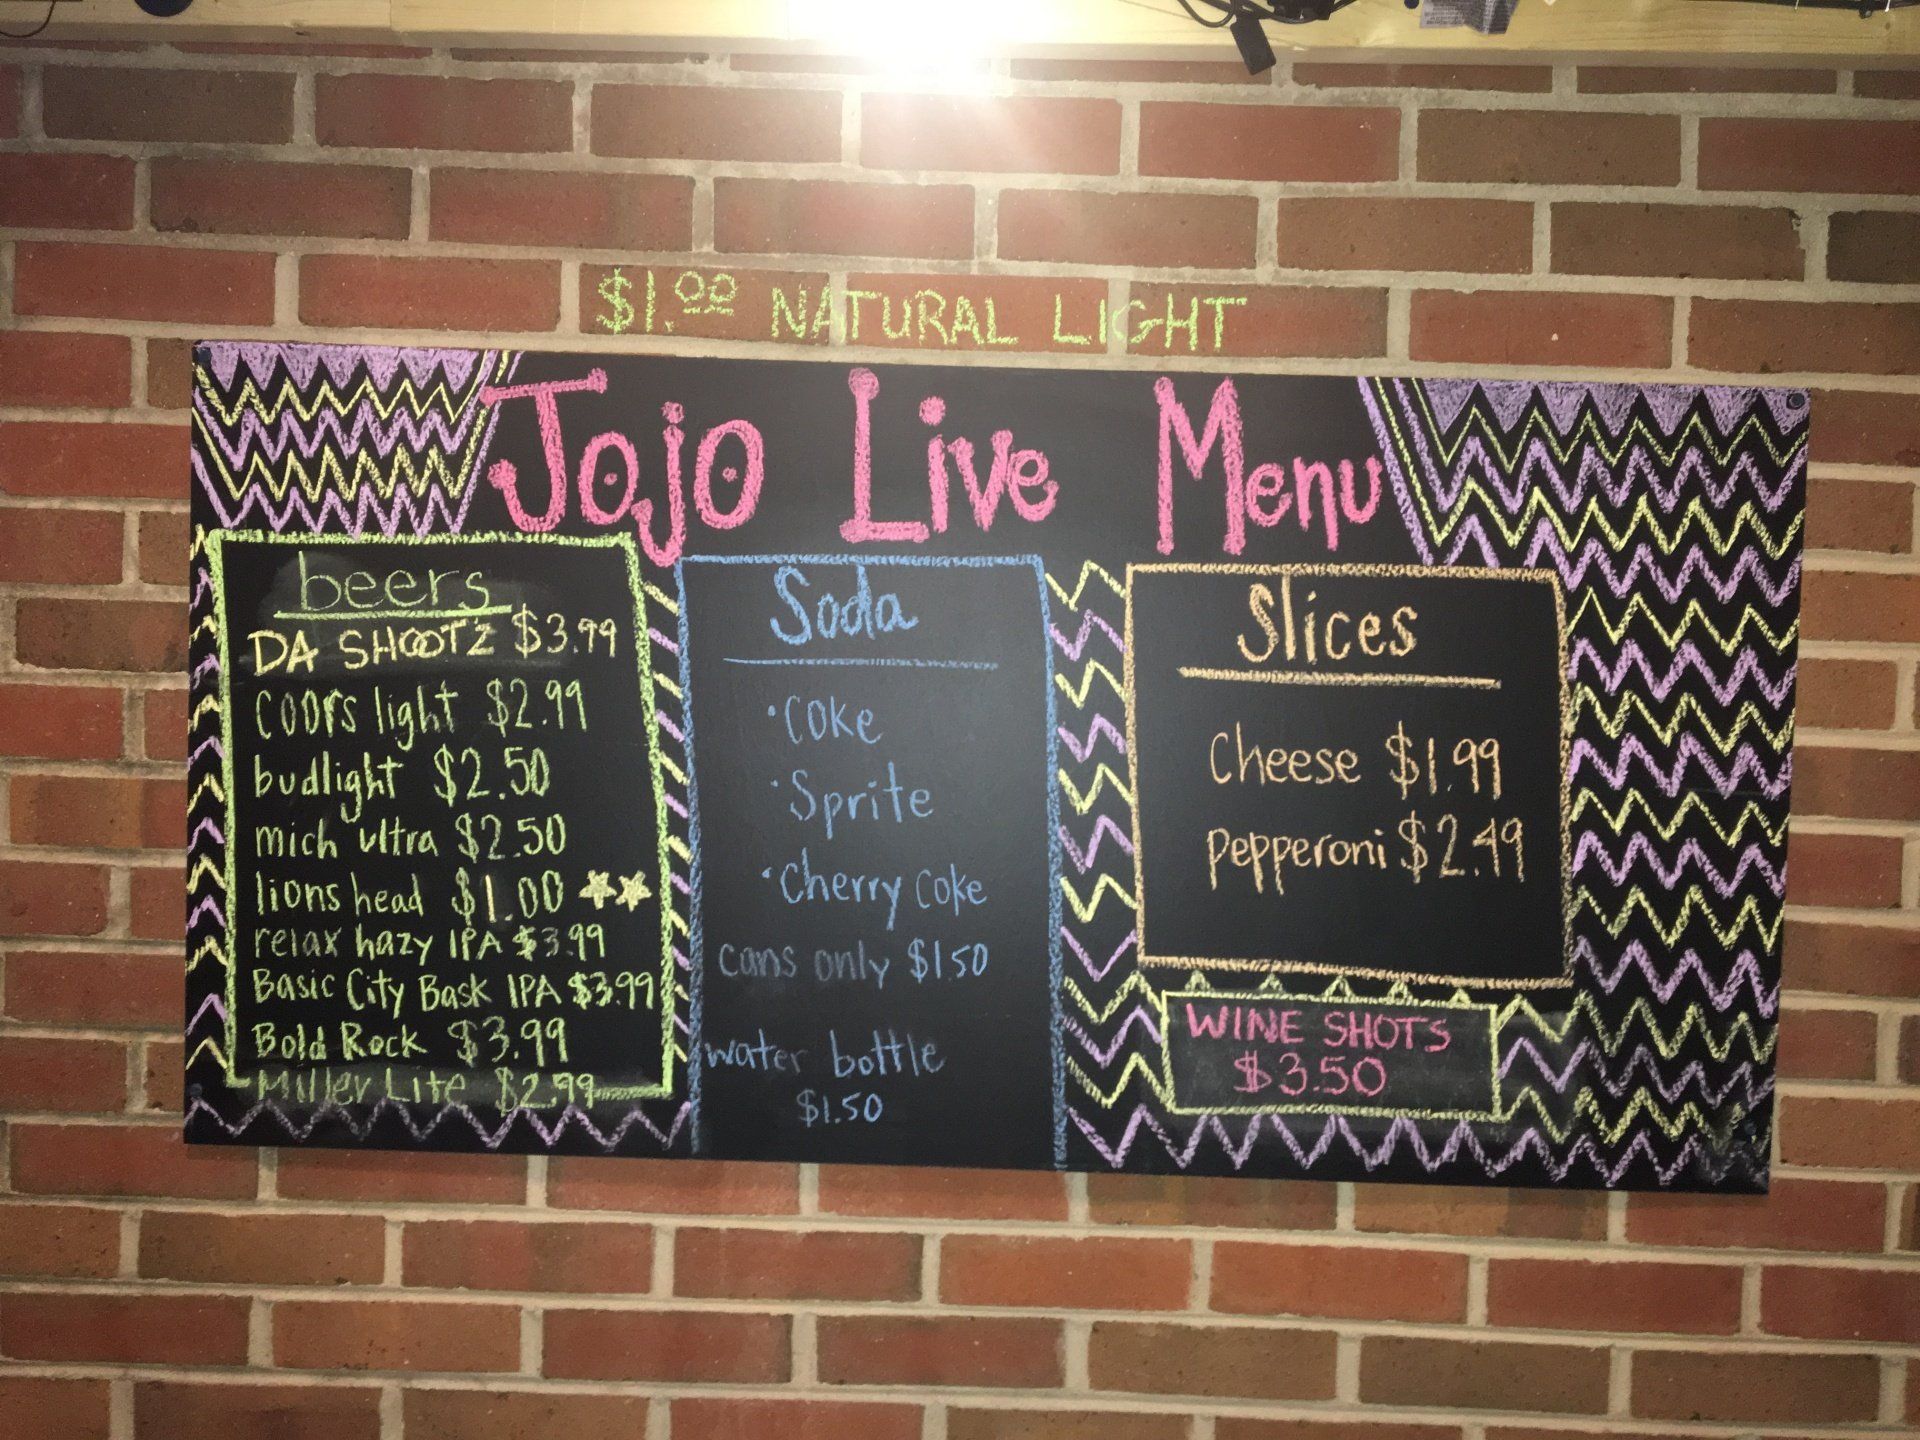 $1.00 NATURAL LIGHT
Jojo Live Menu
beers
DA SHOOTZ $3.99
coors light $2.99
budlight $2.50
mich ultra $2.50
lions head $1.00
relax hazy IPA $3.99
Basic City Bask IPA $3.99
Bold Rock $3.99
Miller Lite $2.99
Soda
• Coke
• Sprite
• Cherry Coke
cans only $1.50
water bottle
$1.50
Slices
Cheese $1.99
Pepperoni $2.49
WINE SHOTS
$3.50